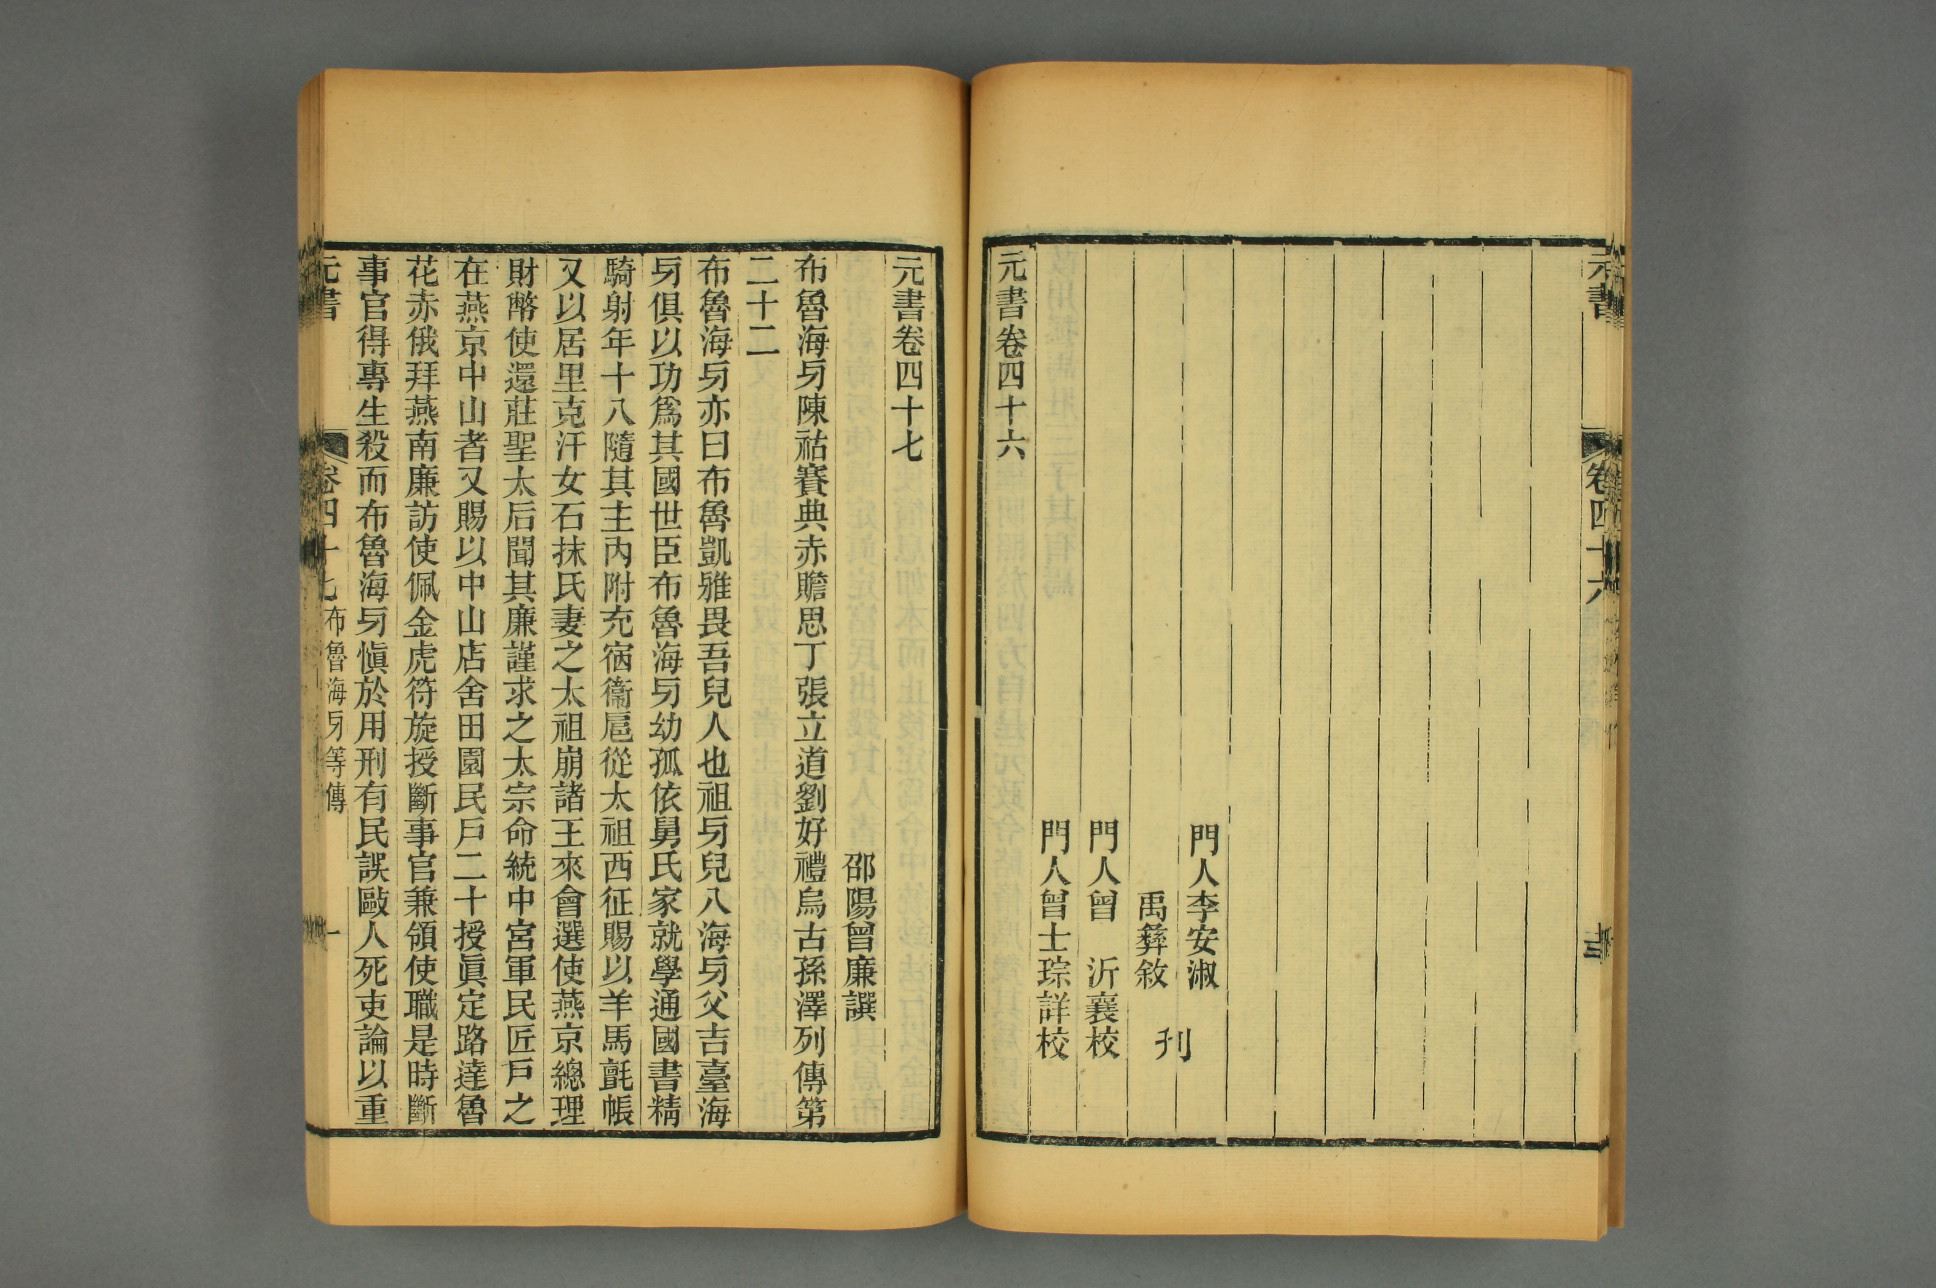 元書
卷四十六
門人李安淑
禹彝敘
刋
門人曾　沂襄校
門人曾士琮詳校
元書卷四十六
元書卷四十七
邵陽曾廉譔
布魯海牙陳祐賽典赤贍思丁張立道劉好禮烏古孫澤列傳第
二十二
布魯海牙亦曰布魯凱雅畏吾兒人也祖牙兒八海牙父吉臺海
牙俱以功爲其國世臣布魯海牙幼孤依舅氏家就學通國書精
騎射年十八隨其主內附充宿衞扈從太祖西征賜以羊馬氈帳
又以居里克汗女石抹氏妻之太祖崩諸王來會選使燕京總理
財幣使還莊聖太后聞其廉謹求之太宗命統中宮軍民匠戶之
在燕京中山者又賜以中山店舍田園民戶二十授眞定路達魯
花赤俄拜燕南廉訪使佩金虎符旋授斷事官兼領使職是時斷
事官得專生殺而布魯海牙愼於用刑有民誤毆人死吏論以重
元書
卷四十七
布魯海牙等傳
一